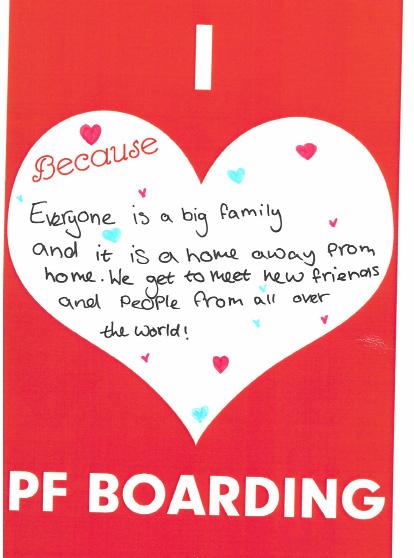 I
Because
Everyone is a big family
and it is a home away from
home. We get to meet new friends
and People from all over
the world!
PF BOARDING